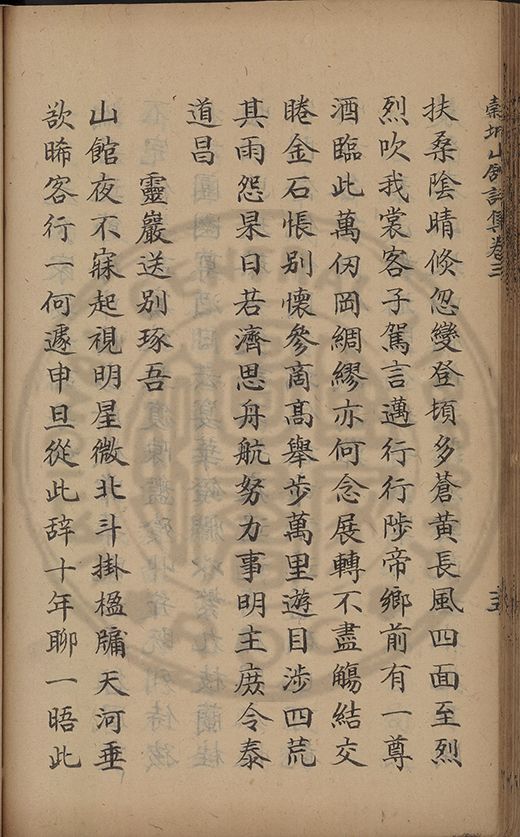 山房詩集卷三
扶桑陰晴倐忽變登頓多蒼黃長風四面至烈
烈吹我裳客子駕言邁行行陟帝鄉前有一尊
酒臨此萬仞岡綢繆亦何念展轉不盡觴結交
睠金石悵別懷參商高舉步萬里遊目涉四荒
其雨怨杲日若濟思舟航努力事明主庶令泰
道昌
靈巖送別琢吾
山館夜不寐起視明星微北斗掛楹牗天河垂
欲晞客行一何遽申旦從此辞十年聊一晤此